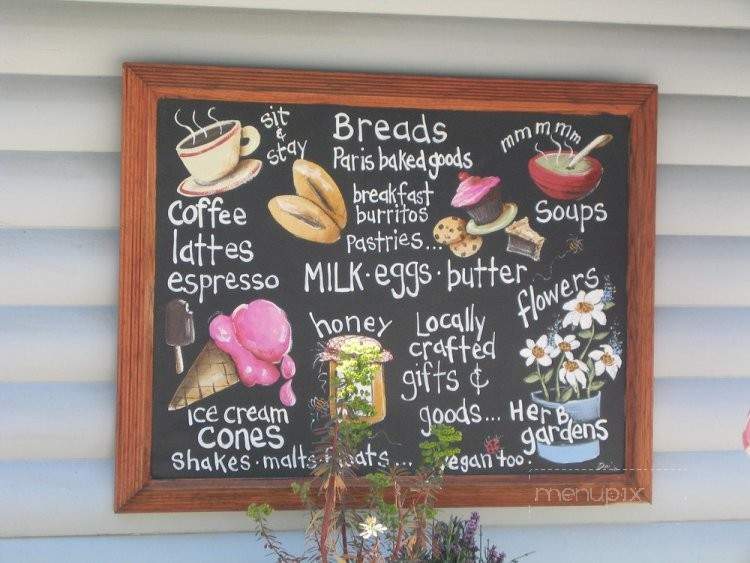 sit
&
stay
Breads
Paris baked goods
mmmmm
breakfast
burritos
Pastries...
Soups
Coffee
lattes
espresso
MILK · eggs · butter
flowers
honey
Locally
crafted
gifts &
goods...
Herb
gardens
Ice cream
CONES
Shakes · malts
vegan too.
menupix